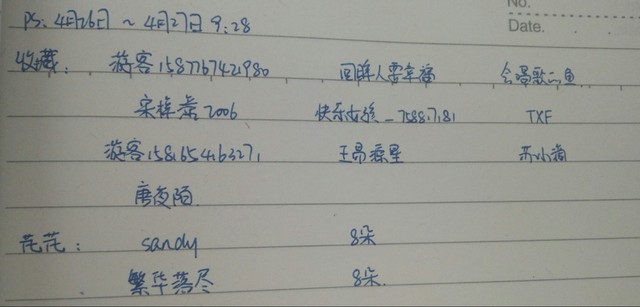 No.
Date.
PS: 4月26日 ~ 4月27日 9:28
收藏: 游客1587767421980 回眸人要幸福 会唱歌的鱼
宋梓蒙2006 快乐女孩_7588.7.81 TXF
游客1581654163271 王易 星 苏小
唐 陌
花花: sandy 8朵
繁华落尽 8朵